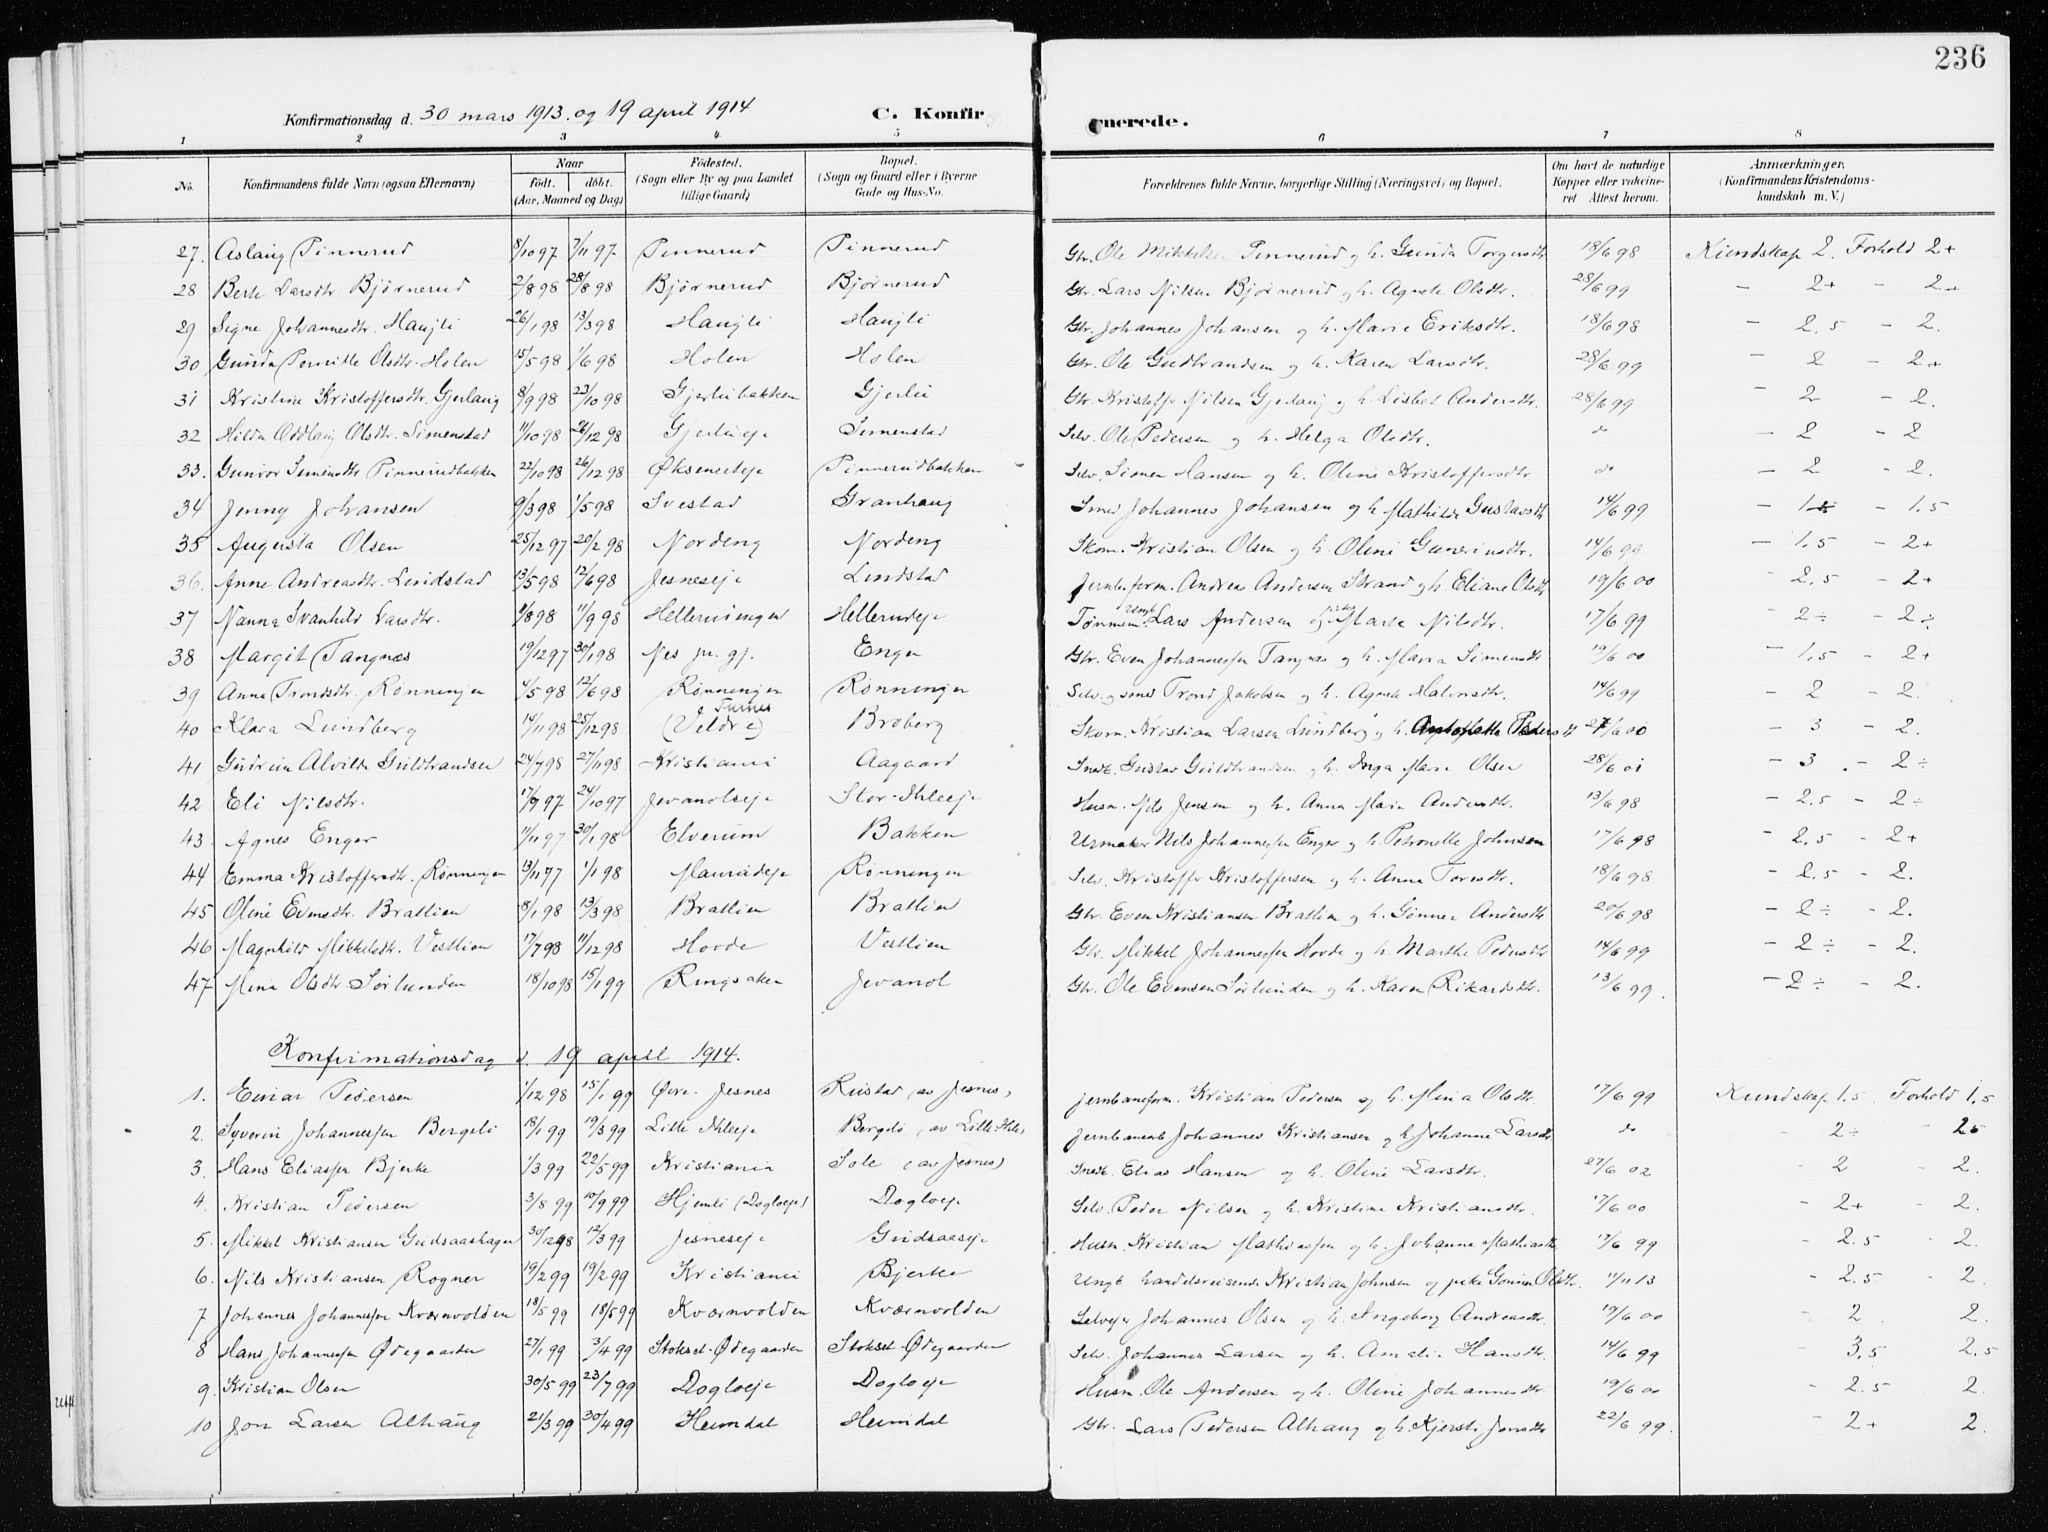 236
Konfirmationsdag d. 30 mars 1913 og 19 april 1914 C. Konfirmerede.
1 2 3 4 5 6 7 8
No. Konfirmandens fulde Navn (ogsaa Efternavn) Naar født. døbt. (Aar, Maaned og Dag) Fødested. (Sogn eller By og paa Landet tillige Gaard) Bopæl. (Sogn og Gaard eller i Byerne Gade og Hus-No. Forældrenes fulde Navne, borgerlige Stilling (Næringsvei) og Bopæl. Om havt de naturlige Kopper eller vakcineret. Attest herom. Anmærkninger. (Konfirmandens Kristendomskundskab m. V.)
27. Aslaug Pinnerud 8/10 97 7/11 97 Pinnerud Pinnerud Gbr. Ole Mikkelsen Pinnerud og h. Gunda Torgersdtr 18/6 98 Kundskap 2. Forhold 2+
28 Berte Larsdtr. Bjørnerud 2/8 98 28/8 98 Bjørnerud Bjørnerud Gbr. Lars Nilsen Bjørnerud og h. Agnete Olsdtr. 28/6 99 - 2+ - 2+
29 Signe Johannesdtr. Haugli 26/1 98 13/3 98 Haugli Haugli Gbr. Johannes Johansen og h. Marie Eriksdtr. 18/6 98 - 2,5 - 2.
30 Gunda Pernille Olsdtr. Holen 15/5 98 1/6 98 Holen Holen Gbr. Ole Gudbrandsen og h. Karen Larsdtr. 28/6 99 - 2 - 2+
31 Kristine Kristoffersdtr. Gjerlaug 8/9 98 23/10 98 Gjerlubakken Gjerlu Gbr. Kristoffer Nilsen Gjerlaug og h. Lisbet Andersdtr. 28/6 99 - 2 - 2.
32 Hilda Oddlaug Olsdtr. Simenstad 11/10 98 26/12 98 Gjerlueje Simenstad Selv. Ole Pedersen og h. Helga Olsdtr. do - 2 - 2
33. Gunvor Simensdtr Pinnerudbakken 22/10 98 26/12 98 Øksneseje Pinnerudbakken Selv. Simen Hansen og h. Oline Kristoffersdtr do - 2 - 2.
34 Jenny Johansen 9/3 98 1/5 98 Svestad Granhaug Smed Johannes Johansen og h. Mathilde Gustavsdtr 14/6 99 - 1.5 - 1.5
35 Augusta Olsen 25/12 97 20/2 98 Nordeng Nordeng Skom. Kristian Olsen og h. Oline Guneriusdtr. 14/6 99 - 1.5 - 2+
36. Anne Andreasdtr. Lundstad 13/5 98 12/6 98 Jesneseje Lundstad Jernb.form. Andreas Andersen Strand og h. Eliane Olsdtr 19/6 00 - 2,5 - 2+
37 Nanna Svanhild Larsdtr. 1/8 98 11/9 98 Hellerudenger Hellerudeje Tømmerm. Lars Andersen og Marte Nilsdtr. 17/6 99 - 2÷ - 2÷
38 Margit Tangnæs 19/12 97 30/1 98 Nes pr. gj. Enger Gbr. Even Johannessen Tangnæs og h. Maria Simensdtr 19/6 00 - 1,5 - 2+
39 Anna Trondsdtr. Rønningen 1/5 98 12/6 98 Rønningen Rønningen Selv. og smed Trond Jakobsen og h. Agnete Halvorsdtr. 14/6 99 - 2 - 2.
40 Klara Lundberg 14/11 98 25/12 98 (Veldre) Furnes Broberg Skom. Kristian Larsen Lundberg og h. Antonette Pedersdtr 27/6 00 - 3 - 2.
41 Gudrun Alvilde Guldbrandsen 24/7 98 27/11 98 Kristiania Aagaard Snedk. Gustav Guldbrandsen og h. Inga Marie Olsen 28/6 01 - 3 - 2÷
42 Eli Nilsdtr. 17/9 97 24/10 97 Jevanolseje Stor-Ihleeje Husm. Nils Jensen og h. Anna Marie Andersdtr. 13/6 98 - 2,5 - 2÷
43. Agnes Enger 11/11 97 30/1 98 Elverum Bakken Urmaker Nils Johannessen Enger og h. Petronelle Johnsen 17/6 98 - 2,5 - 2+
44 Emma Kristoffersdtr. Rønningen 13/11 97 1/1 98 Maurudeje Rønningen Selv. Kristoffer Kristoffersen og h. Anna Toresdtr. 18/6 98 - 2,5 - 2.
45 Oline Evensdtr. Bratlien 8/1 98 13/3 98 Bratlien Bratlien Gbr. Even Kristiansen Bratlien og h. Gønner Andersdtr 20/6 98 - 2÷ - 2.
46 Magnhild Mikkelsdtr. Vestlien 17/7 98 11/12 98 Hovde Vestlien Gbr. Mikkel Johannessen Hovde og h. Marthe Pedersdtr 14/6 99 - 2÷ - 2.
47 Mina Olsdtr Sørlunden 18/10 98 15/1 99 Ringsaker Jevanol Gbr. Ole Evensen Sørlunden og h. Karen Rikardsdtr. 13/6 99. - 2÷ - 2.
Konfirmationsdag d. 19 april 1914.
1. Einar Pedersen 1/12 98 15/1 99 Øvre-Jesnes Rustad (av Jesnes) Jernbaneform. Kristian Pedersen og h. Mina Olsdtr. 17/6 99 Kundskap 1,5 Forhold 1,5
2. Syverin Johannessen Bergsli 18/1 99 19/3 99 Lille Ihleeje Bergsli (av Lille Ihle) Jernbanearb Johannes Kristiansen og h Johanne Larsdtr do - 2÷ - 2.
3. Hans Eliassen Bjerke 1/3 99 22/5 99 Kristiania Sole (av Jesnes) Snedk. Elias Hansen og h. Oline Larsdtr. 27/6 02 - 2 - 2.
4. Kristian Pedersen 3/8 99 10/9 99 Hjemli (Dogloeje) Dogloeje Selv. Peder Nilsen og h. Kristine Kristiansdtr. 17/6 00 - 2+ - 2.
5. Mikkel Kristiansen Gudsaashagen 30/12 98 12/3 99 Jesneseje Gudsaaseje Husm. Kristian Mathiassen og h. Johanne Mathiasdtr 17/6 99 - 2.5 - 2.
6. Nils Kristiansen Rogner 19/2 99 19/2 99 Kristiania Bjerke Ungk handelsreisende Kristian Johnsen og pike Gønner Olsdtr. 11/11 13 - 2.5 - 2
7 Johannes Johannessen Kværnvolden 18/5 99 18/5 99 Kværnvolden Kværnvolden Selvejer Johannes Olsen og h. Ingeborg Andreasdtr. 19/6 00 - 2 2.
8 Hans Johannessen Ødegaarden 27/1 99 3/4 99 Stokset-Ødegaarden Stokset-Ødegaarden Selv. Johannes Larsen og h. Amalie Hansdtr. 14/6 99 - 3,5 2,5
9. Kristian Olsen 30/5 99 23/7 99 Dogloeje Dogloeje Husm. Ole Andersen og h. Oline Johannesdtr 19/6 00 - 2.5 2.
10 Jon Larsen Alhaug 21/3 99 30/4 99 Heimdal Heimdal Gbr. Lars Pedersen Alhaug og h. Kjersti Jonsdtr 22/6 99. - 2+ 2